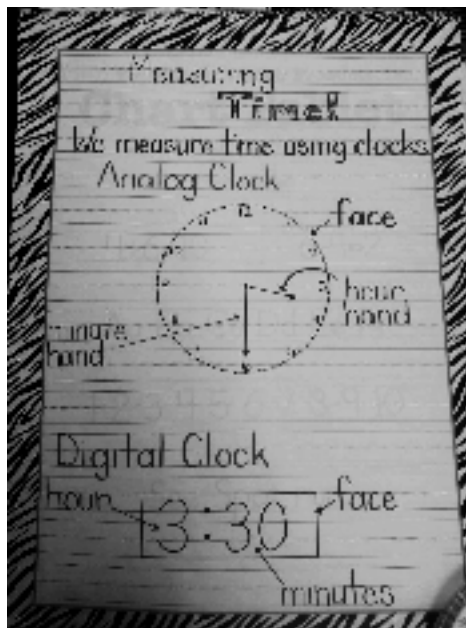 Measuring
Time!
We measure time using clocks.
Analog Clock
face
12
hour
hand
minute
hand
Digital Clock
hour
face
3:30
minutes